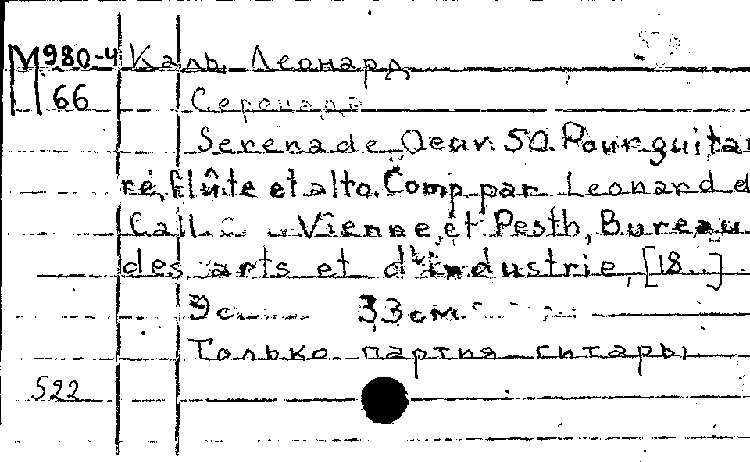 М980-4 Каль, Леонард
66 Серенада
Serenade Oeuv. 50. Pour guitar
re, flûte et alto. Comp par Leonard d
Call. Vienne et Pesth, Bureau
des arts et d'industrie, [18..]
9 с. 33 см.
Только партия гитары
522